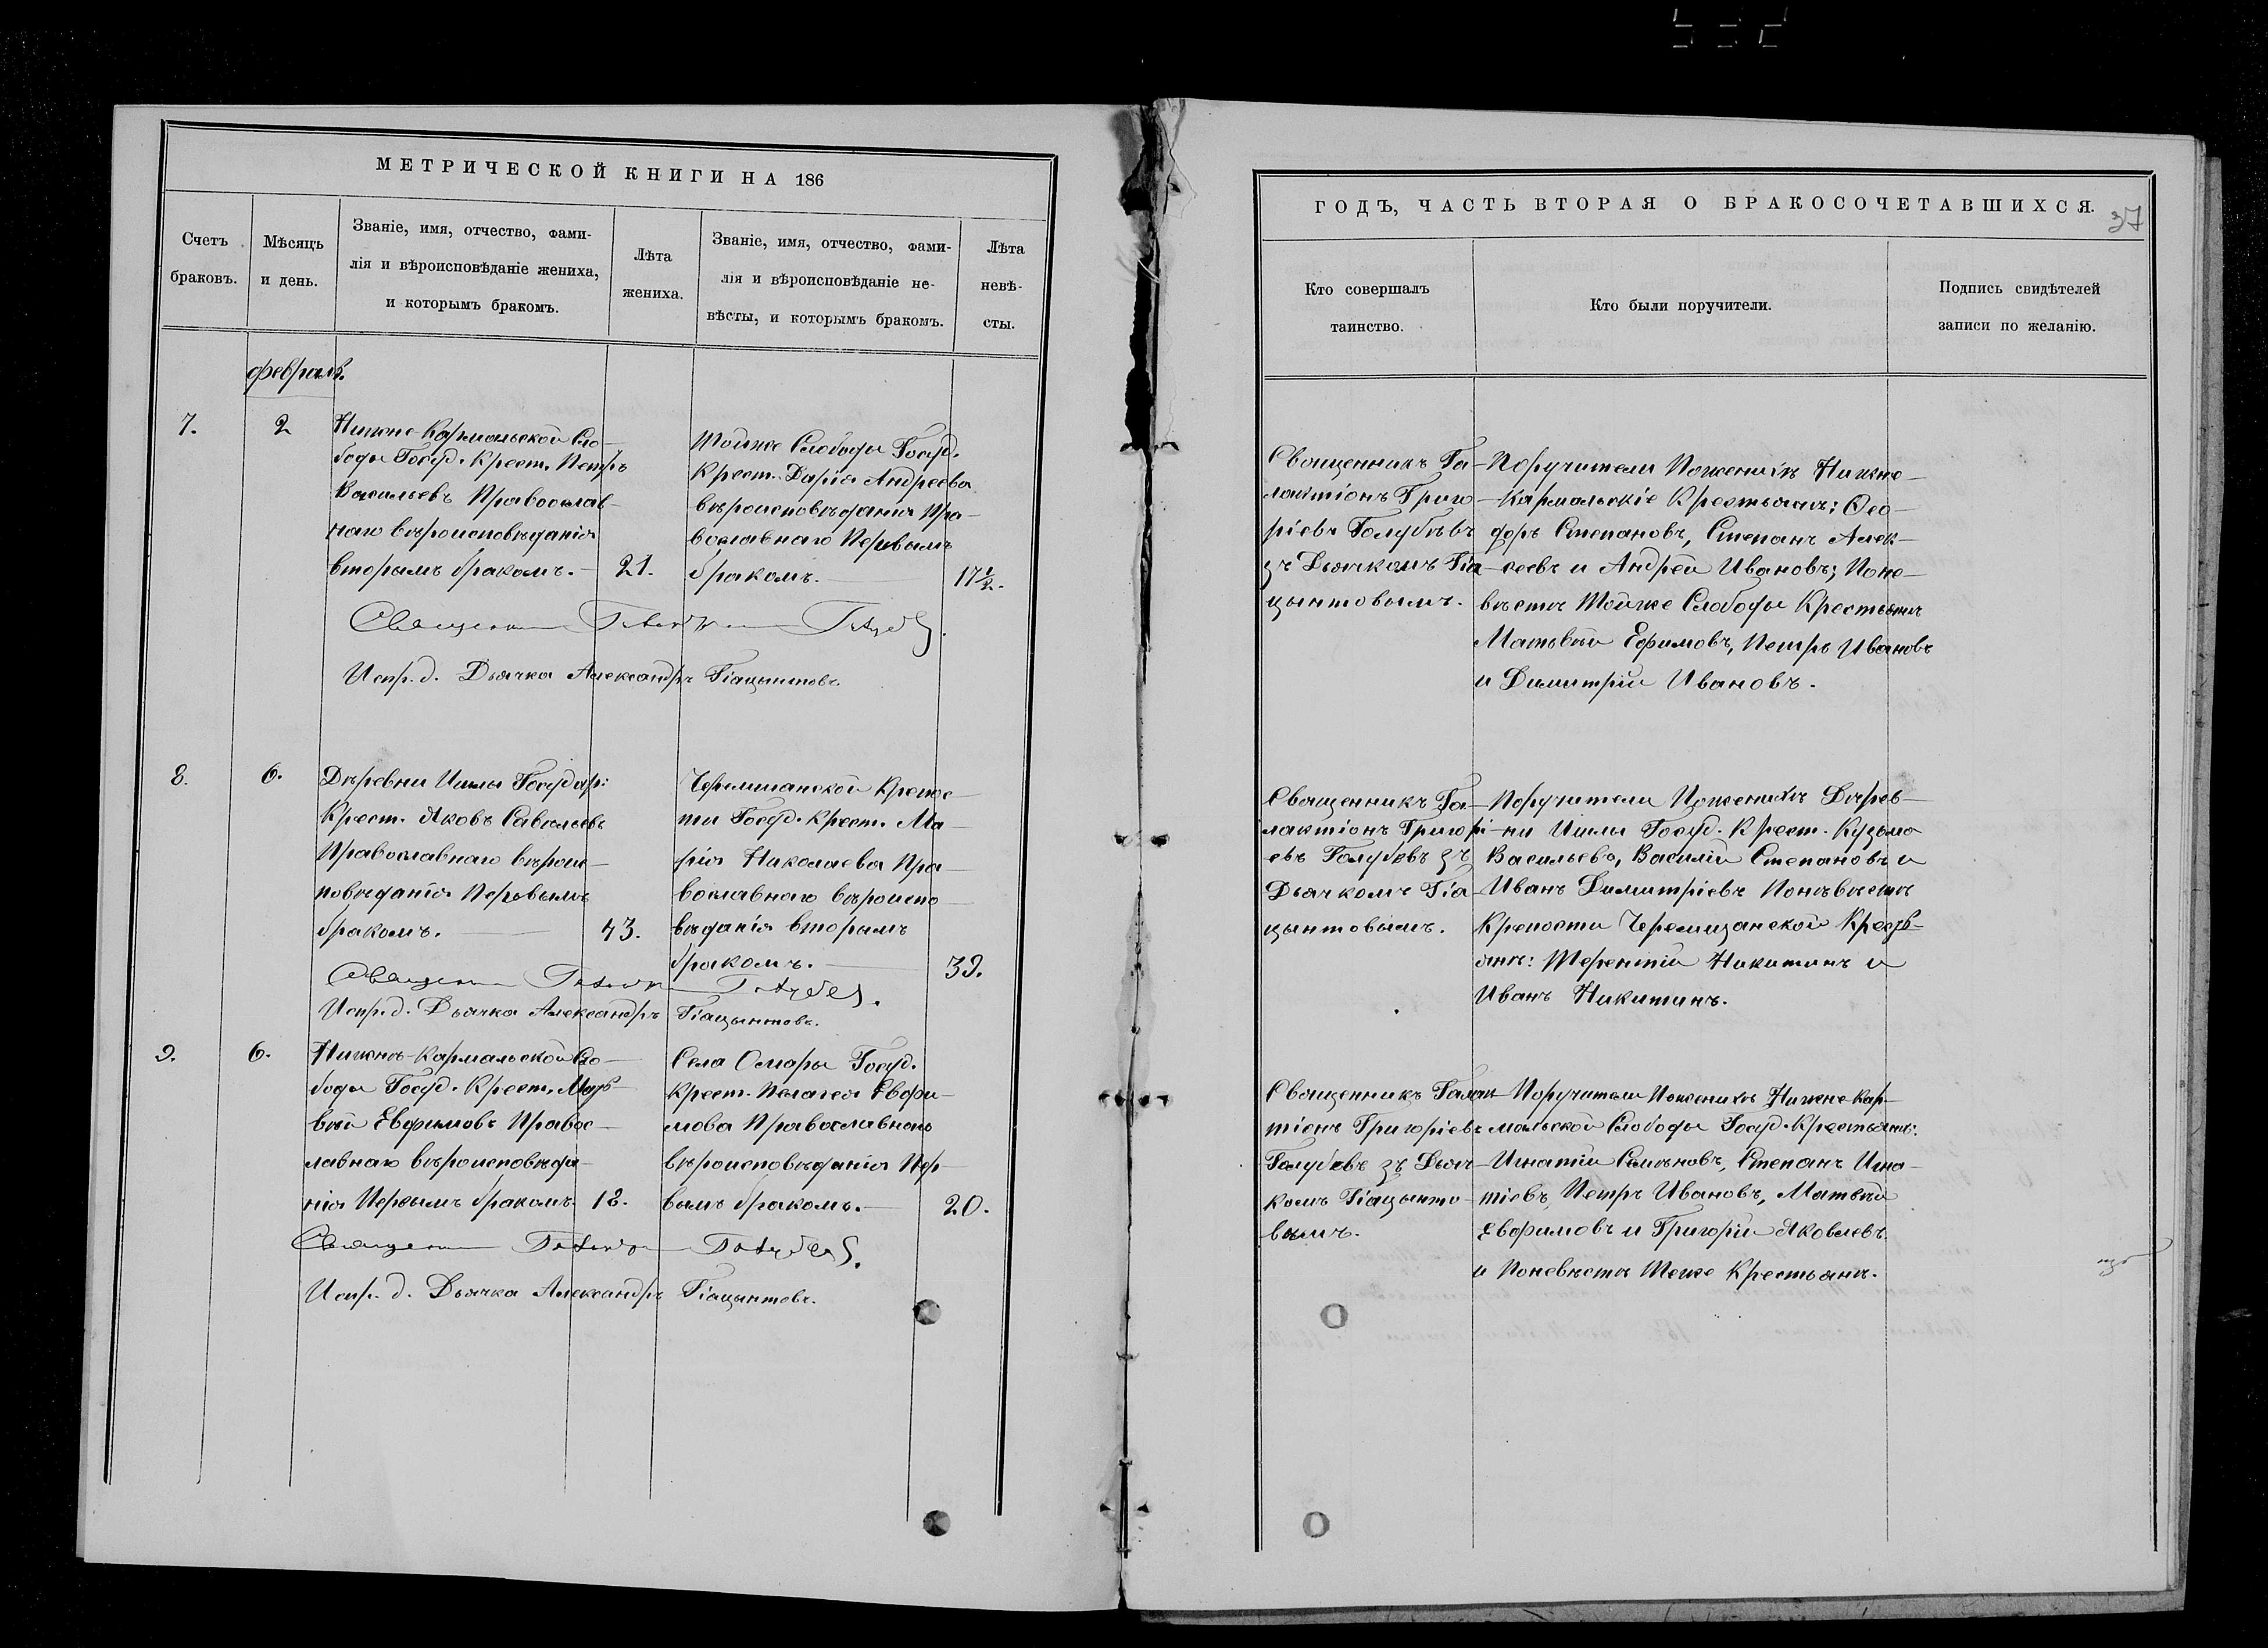 МЕТРИЧЕСКОЙ КНИГИ НА 186
Счетъ
браковъ.
Мѣсяцъ
и день.
Званіе, имя, отчество, фами-
лія и вѣроисповѣданіе жениха,
и которымъ бракомъ.
Лѣта
жениха.
Званіе, имя, отчество, фами-
лія и вѣроисповѣданіе не-
вѣсты, и которымъ бракомъ.
Лѣта
невѣ-
сты.
февраль.
7.
2
Нижне-Кармальской Сло-
боды Госуд. Крест. Петръ
Васильевъ Православ-
наго вѣроисповѣданія
вторымъ бракомъ.
21.
Тойже Слободы Госуд.
Крест. Дарія Андреева
вѣроисповѣданія Пра-
вославнаго Первымъ
бракомъ.
17½.
Испр. д. Дьячка Александръ Гіацынтовъ.
8.
6.
Дѣревни Ишлы Государ:
Крест. Яковъ Савельевъ
Православнаго вѣрои-
повѣданія Первымъ
бракомъ.
43.
Черемшанской Крепос-
ти Госуд. Крест. Ма-
рія Николаева Пра-
вославнаго вѣроиспо-
вѣданія вторымъ
бракомъ.
39.
Испр. д. Дьячка Александръ Гіацынтовъ.
9.
6.
Нижне-Кармальской Сло-
боды Госуд. Крест. Матѳ-
вѣй Евфимовъ Правос-
лавнаго вѣроисповѣда-
нія Первымъ бракомъ.
18.
Села Омары Госуд.
Крест. Пелагея Евфи-
мова Православнаго
вѣроисповѣданія Пер-
вымъ бракомъ.
20.
Испр. д. Дьячка Александръ Гіацынтовъ.
ГОДЪ, ЧАСТЬ ВТОРАЯ О БРАКОСОЧЕТАВШИХСЯ.
37
Кто совершалъ
таинство.
Кто были поручители.
Подпись свидѣтелей
записи по желанію.
Священникъ Га-
лактіонъ Григо-
ріевъ Голубѣвъ
зъ Дьячкомъ Гіа-
цынтовымъ.
Поручители Поженихѣ Нижне-
Кармальскіе Крестьянъ: Ѳео-
доръ Степановъ, Степанъ Алек-
сеевъ и Андрей Ивановъ; Поне-
вѣстѣ Тойже Слободы Крестьянъ
Матвѣй Ефимовъ, Петръ Ивановъ
и Димитрій Ивановъ.
Священникъ Га-
лактіонъ Григорі-
евъ Голубевъ зъ
Дьячкомъ Гіа-
цынтовымъ.
Поручители Поженихѣ Дѣрев-
ни Ишлы Госуд. Крест. Кузьма
Васильевъ, Василій Степановъ и
Иванъ Димитріевъ Поневѣстѣ
Крепости Черемшанской Кресть-
янъ: Терентій Никитинъ и
Иванъ Никитинъ.
Священникъ Галак-
тіонъ Григоріевъ
Голубевъ зъ Дьяч-
комъ Гіацынто-
вымъ.
Поручители Поженихѣ Нижне-Кар-
мальской Слободы Госуд. Крестьянъ:
Игнатій Семеновъ, Степанъ Игна-
тіевъ, Петръ Ивановъ, Матвѣй
Евфимовъ и Григорій Яковлевъ
и Поневѣстѣ Теже Крестьяне.